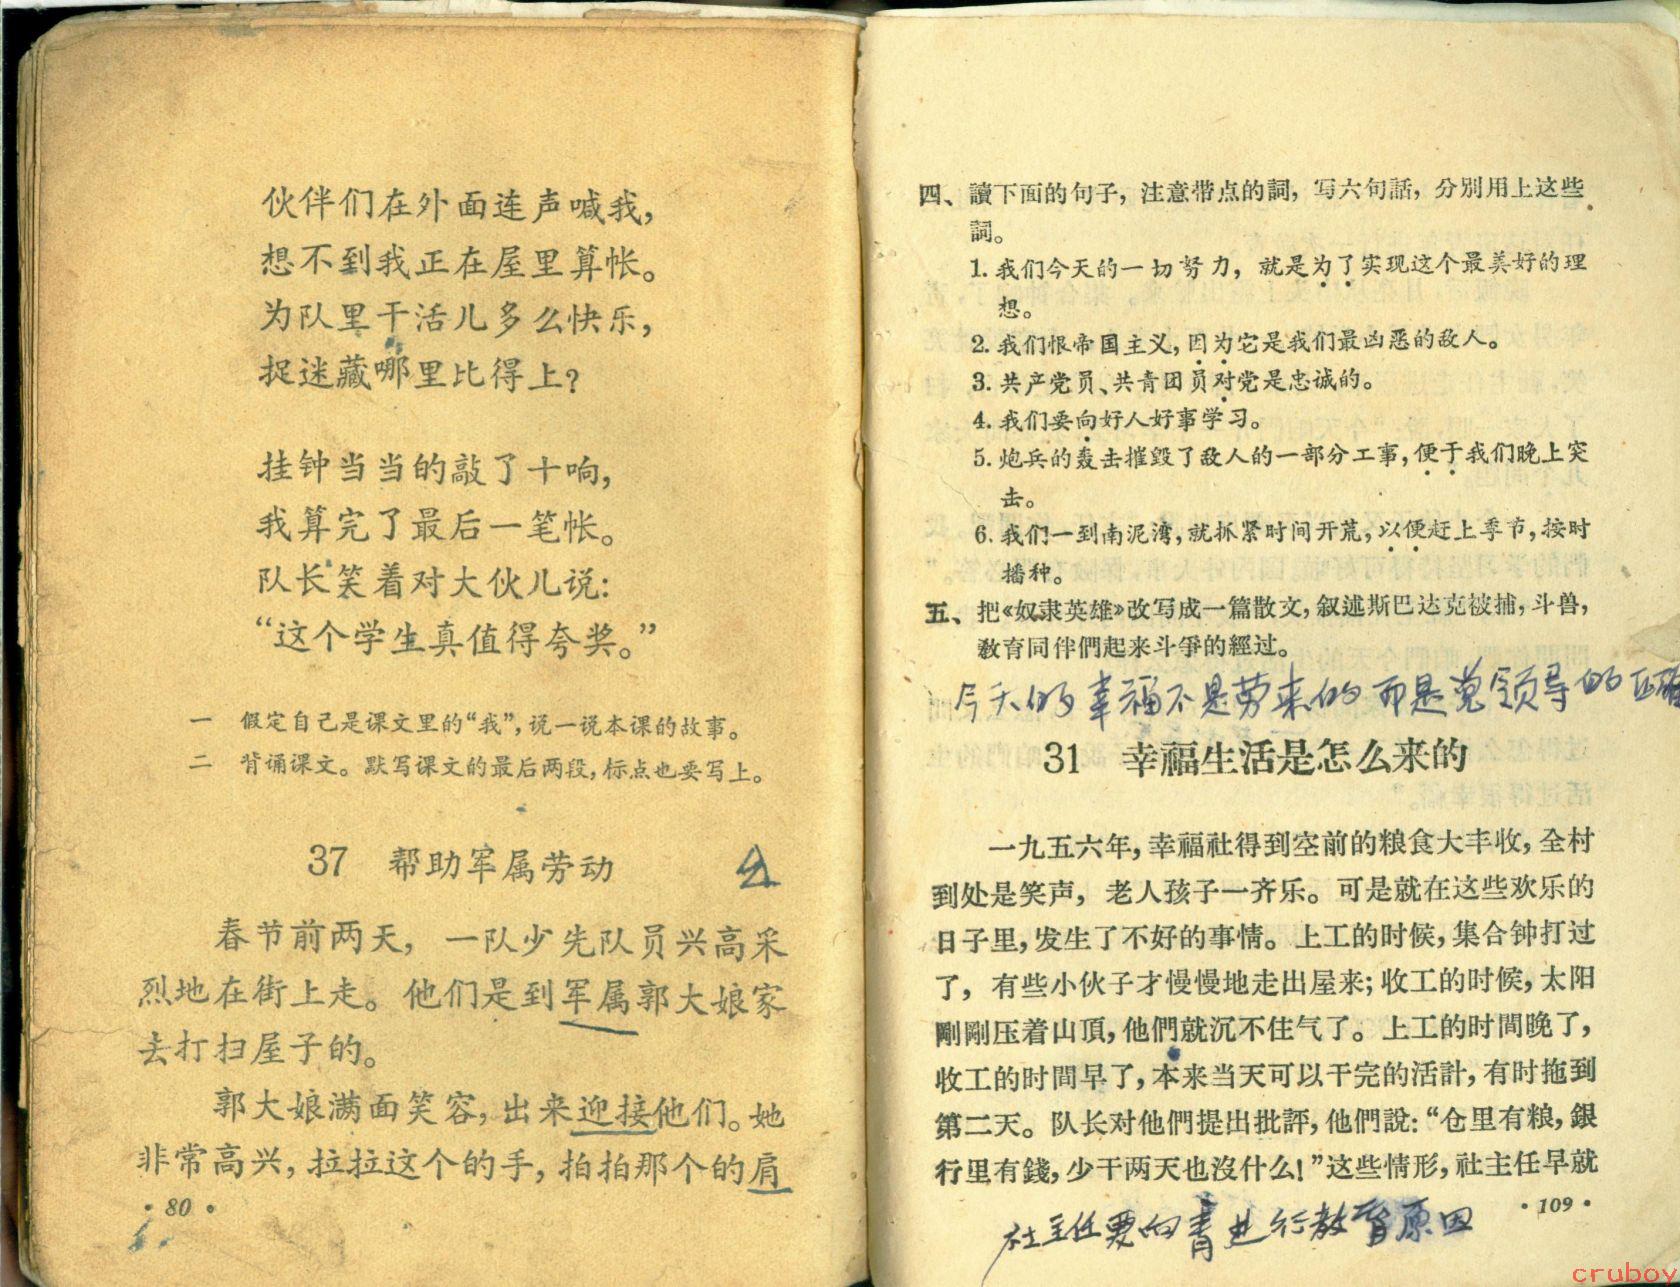 伙伴们在外面连声喊我，
想不到我正在屋里算帐。
为队里干活儿多么快乐，
捉迷藏哪里比得上？
挂钟当当的敲了十响，
我算完了最后一笔帐。
队长笑着对大伙儿说：
“这个学生真值得夸奖。”
一 假定自己是课文里的“我”，说一说本课的故事。
二 背诵课文。默写课文的最后两段，标点也要写上。
37 帮助军属劳动
春节前两天，一队少先队员兴高采
烈地在街上走。他们是到军属郭大娘家
去打扫屋子的。
郭大娘满面笑容，出来迎接他们。她
非常高兴，拉拉这个的手，拍拍那个的肩
·80·
四、讀下面的句子，注意带点的詞，写六句話，分别用上这些
詞。
1. 我们今天的一切努力，就是为了实现这个最美好的理
想。
2. 我们恨帝国主义，因为它是我们最凶恶的敌人。
3. 共产党员、共青团员对党是忠诚的。
4. 我们要向好人好事学习。
5. 炮兵的轰击摧毁了敌人的一部分工事，便于我们晚上突
击。
6. 我们一到南泥湾，就抓紧时间开荒，以便赶上季节，按时
播种。
五、把《奴隶英雄》改写成一篇散文，叙述斯巴达克被捕，斗兽，
教育同伴們起来斗爭的經过。
今天的幸福不是劳来的而是党领导的正确
31 幸福生活是怎么来的
一九五六年，幸福社得到空前的粮食大丰收，全村
到处是笑声，老人孩子一齐乐。可是就在这些欢乐的
日子里，发生了不好的事情。上工的时候，集合钟打过
了，有些小伙子才慢慢地走出屋来；收工的时候，太阳
剛剛压着山頂，他們就沉不住气了。上工的时間晚了，
收工的时間早了，本来当天可以干完的活計，有时拖到
第二天。队长对他們提出批評，他們說：“仓里有粮，銀
行里有錢，少干两天也沒什么！”这些情形，社主任早就
·109·
社主任要向青进行教育原因
cruboy